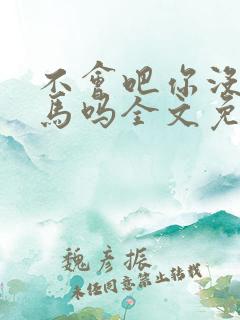 不會吧你没
馬吗全文免
魏彦振
未经同意禁止转载